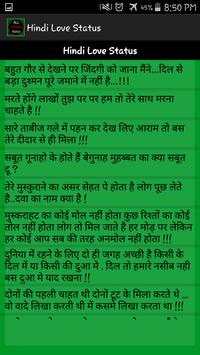 45% 8:50 PM
Hindi Love Status
Hindi Love Status
बहुत गौर से देखने पर जिंदगी को जाना मैंने...दिल से
बड़ा दुश्मन पूरे जमाने में नहीं है...!!!
मरते होंगे लाखों तुझ पर पर हम तो तेरे साथ मरना
चाहते है !!
सारे ताबीज गले में पहन कर देख लिए आराम तो बस
तेरे दीदार से ही मिला !!!
सबूत गूनाहो के होते हैं बेगुनाह मुहब्बत का क्या सबूत
दू ?
तेरे मुस्कुराने का असर सेहत पे होता है लोग पूछ लेते
है..दवा का नाम क्या है !
मुस्कराहट का कोई मोल नहीं होता कुछ रिश्तों का कोई
तोल नहीं होता लोग तो मिल जाते है हर मोड़ पर लेकिन
हर कोई आप सब की तरह अनमोल नहीं होता !!!
दुनिया में रहने के लिए दो ही जगह अच्छी है किसी के
दिल में या किसी की दुआ में . दिल तो हमारे नसीब नही
बस दुआ मे याद रखना !!
दोनों की पहली चाहत थी दोनों टूट के मिला करते थे ...
वो वादे लिखा करती थी में कसमे लिखा करता था. !!!